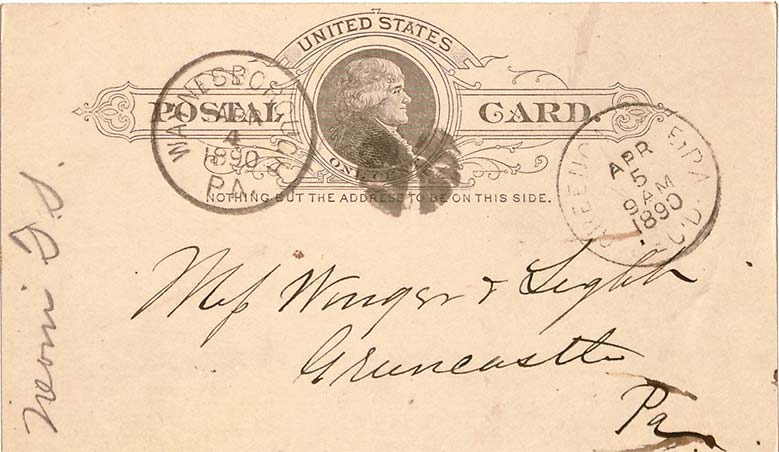 UNITED STATES
POSTAL CARD.
ONE CENT
NOTHING BUT THE ADDRESS TO BE ON THIS SIDE.
WAYNESBOROUGH
APR
4
1890
PA.
APR
5
9AM
1890
REC'D.
Mess Winger &
Greencastle
Pa